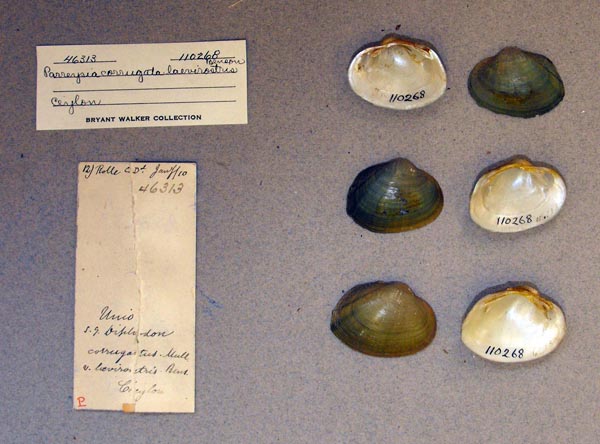 46313 110268
Benson
Parreysia corrugata laevirostris
Ceylon
BRYANT WALKER COLLECTION
Rolle C. Dt Jan/10
46313
Unio
s.g.
corrugatus Mull
v. lævirostris Bens
Ceylon
P
110268
110268
110268